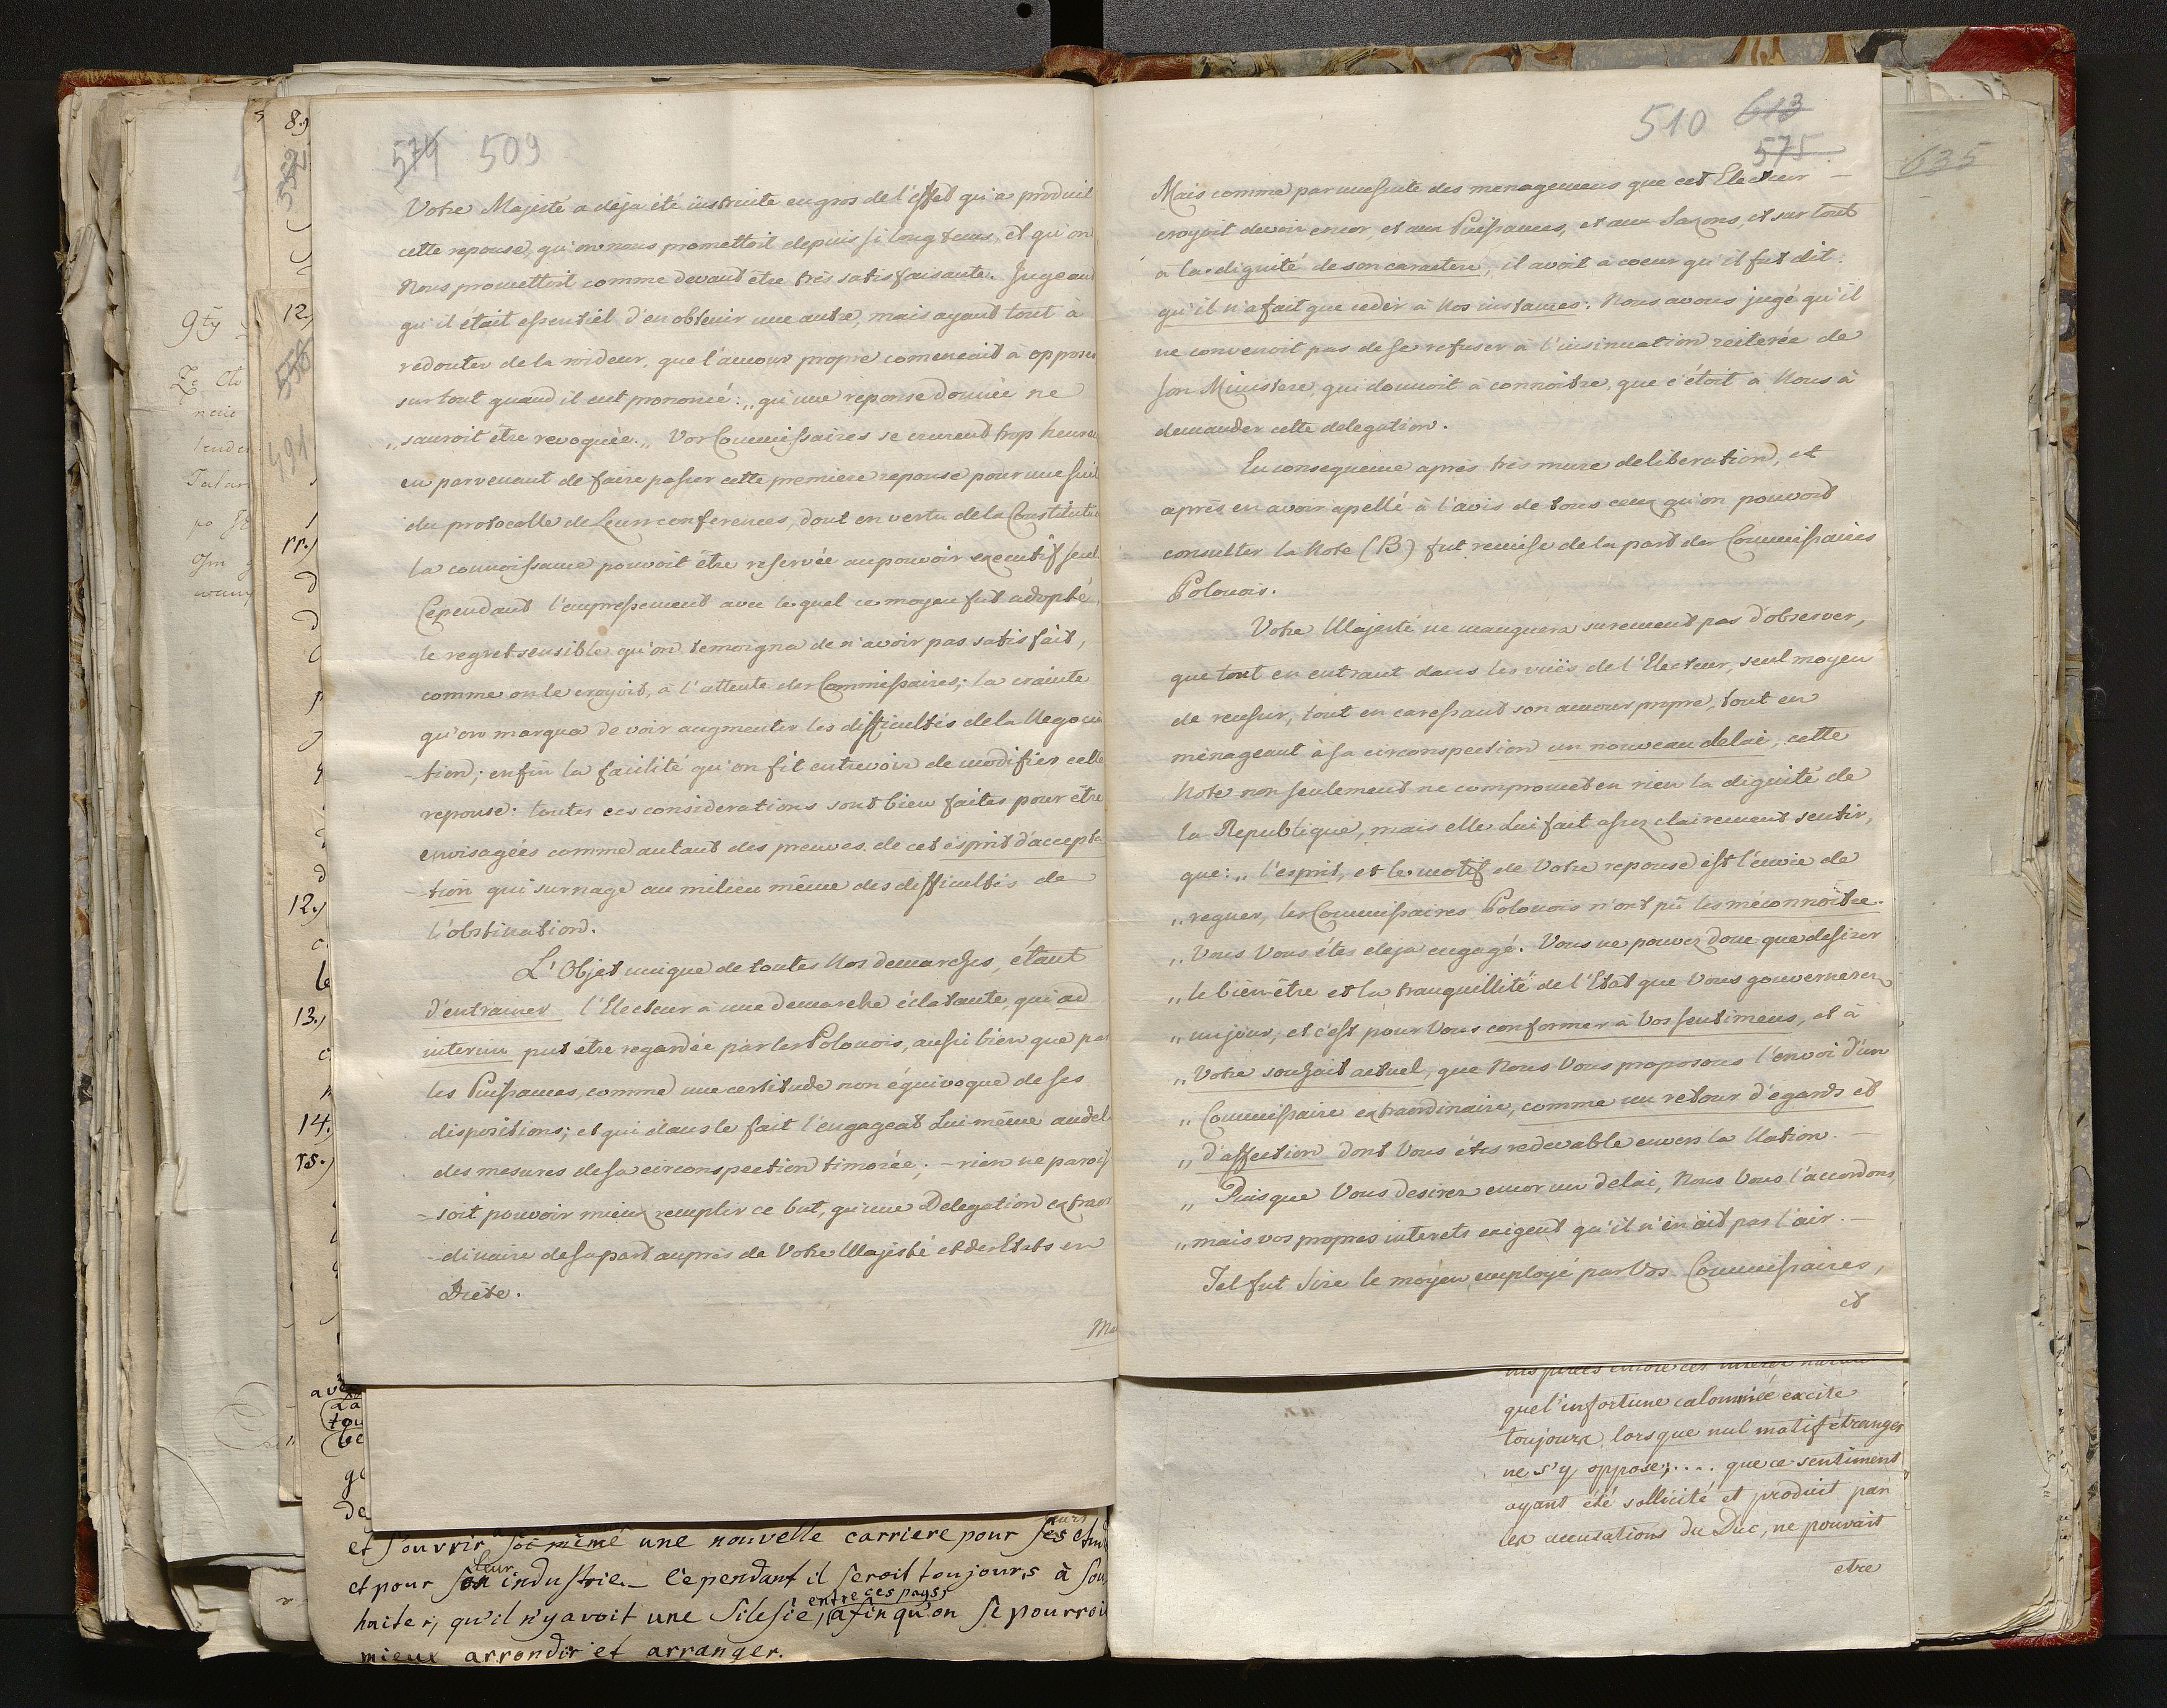 574 509
Votre Majesté a deja été instruite en gros de l'effet qu'a produit
cette reponse, qu'on nous promettoit depuis si long tems, et qu'on
Nous promettoit comme devant être très satisfaisante. Jugeant
qu'il était essentiel d'en obtenir une autre, mais ayant tout à
redouter de la roideur, que l'amour propre comencait à opposer
surtout quand il eut prononcé: „qu'une reponse donnée ne
„sauroit être revoquée.„ Vos Commissaires se crurent trop heureu
en parvenant de faire passer cette premiere reponse pour une suit
du protocolle de Leurs conferences, dont en vertu de la Constitutio
la connoissance pouvoit être reservée au pouvoir executif seul
Cependant l'empressement avec lequel ce moyen fut adopté,
le regret sensible qu'on temoigna de n'avoir pas satisfait,
comme on le croyoit, à l'attente des Commissaires; la crainte
qu'on marqua de voir augmenter les difficultés de la Negocia
-tion; enfin la facilité qu'on fit entrevoir de modifier cette
reponse: toutes ces considerations sont bien faites pour être
envisagées comme autant des preuves de cet esprit d'accepta
-tion qui surnage au milieu même des difficultés de
l'obstination.
L'Objet unique de toutes Nos demarches, étant
d'entrainer l'Electeur à une demarche éclatante, qui ad
interim put etre regardée par les Polonois, aussi bien que par
les Puissances, comme une certitude non équivoque de ses
dispositions; et qui dans le fait l'engageat Lui même audel
des mesures de sa circonspection timorée; - rien ne parois
-soit pouvoir mieux remplir ce but, qu'une Delegation extraor
-dinaire de sa part auprès de Votre Majesté et des Etats en
Diète.
Ma
510 613
575
Mais comme par une suite des menagemens que cet Electeur -
croyoit devoir encor, et aux Puissances, et aux Saxons, et sur tout
à la dignité de son caractere, il avoit à coeur qu'il fut dit:
qu'il n'a fait que ceder à Nos instances: Nous avons jugé qu'il
ne convenoit pas de se refuser à l'insinuation reiterée de
son Ministere, qui donnoit à connoitre, que c'étoit à Nous à
demander cette delegation.
En consequence après très mure deliberation, et
après en avoir apellé à l'avis de tous ceux qu'on pouvoit
consulter la Note (B) fut remise de la part des Commissaires
Polonois.
Votre Majesté ne manquera surement pas d'observer,
que tout en entrant dans les vuës de l'Electeur, seul moyen
de reussir, tout en caressant son amour propre, tout en
ménageant à sa circonspection un nouveau delai, cette
Note non seulement ne compromet en rien la dignité de
la Republique, mais elle Lui fait assez clairement sentir,
que: „l'esprit, et le motif de Votre reponse est l'envie de
„regner, les Commissaires Polonois n'ont pû les méconnoitre.
„Vous Vous étes deja engagé. Vous ne pouvez donc que desirer
„le bien-être et la tranquillité de l'Etat que Vous gouvernerez
„un jour, et c'est pour Vous conformer à Vos sentimens, et à
„Votre souhait actuel, que Nous Vous proposons l'envoi d'un
„Commissaire extraordinaire, comme un retour d'égards et
„d'affection dont Vous étes redevable envers la Nation. -
„Puisque Vous desirez encor un delai, Nous Vous l'accordons,
„mais vos propres interets exigent qu'il n'en ait pas l'air. -
Tel fut Sire le moyen employé par Vos Commissaires,
et
635
que l'infortune calomniée excite
toujours lorsque nul motif étranger
ne s'y oppose; .... que ce sentiment
ayant été sollicité et produit par
les accusations du Duc, ne pouvait
etre
et s'ouvrir à soi même une nouvelle carriere pour ses
et pour leur industrie. - Cependant il seroit toujours à sou
haiter, qu'il n'y avoit une Silesie entre ces pays, afin qu'on se pourroit
mieux arrondir et arranger.
8.)
552
12.)
556
491
11.)
12.)
13.)
14.)
15.)